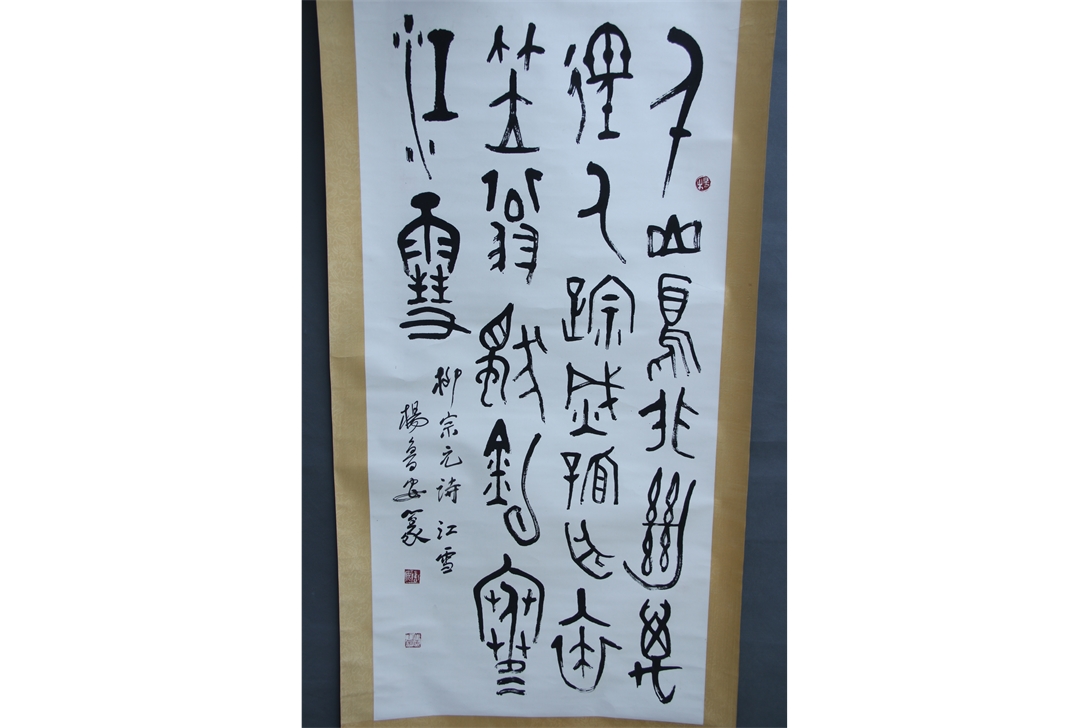 千山鳥飛絕萬
徑人蹤滅孤舟蓑
笠翁獨釣寒
江雪
柳宗元詩江雪
楊魯安篆